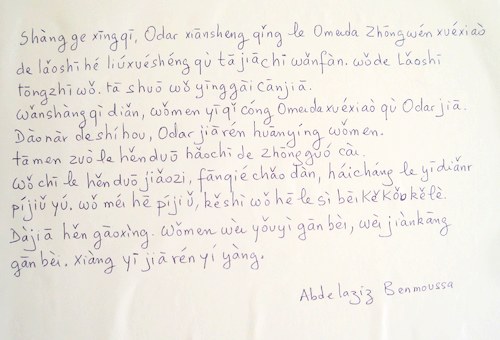 Shàng ge xīngqī, Odar xiānsheng qǐng le Omeida Zhōngwén xuéxiào
de lǎoshī hé liúxuéshéng qù tā jiā chī wǎnfàn. wǒde Lǎoshī
tōngzhī wǒ. tā shuō wǒ yīnggāi cānjiā.
wǎnshàng qī diǎn, wǒmen yī qǐ cóng Omeida xuéxiaò qù Odar jiā.
Dào nàr de shí hou, Odar jiā rén huānyíng wǒmen.
tā men zuò le hěn duō hǎochī de zhōngguó cài.
wǒ chī le hěn duō jiǎozi, fānqié chǎo dàn, háicháng le yīdiǎnr
píjiǔ yú. wǒ méi hē píjiǔ, kěshì wǒ hē le sì bēi Kě Kǒu kě lè.
Dàjiā hěn gāoxìng. Wǒmen wèi yǒuyì gān bēi, wèi jiànkāng
gān bēi. Xiàng yī jiā rén yí yàng.
Abdelaziz Benmoussa